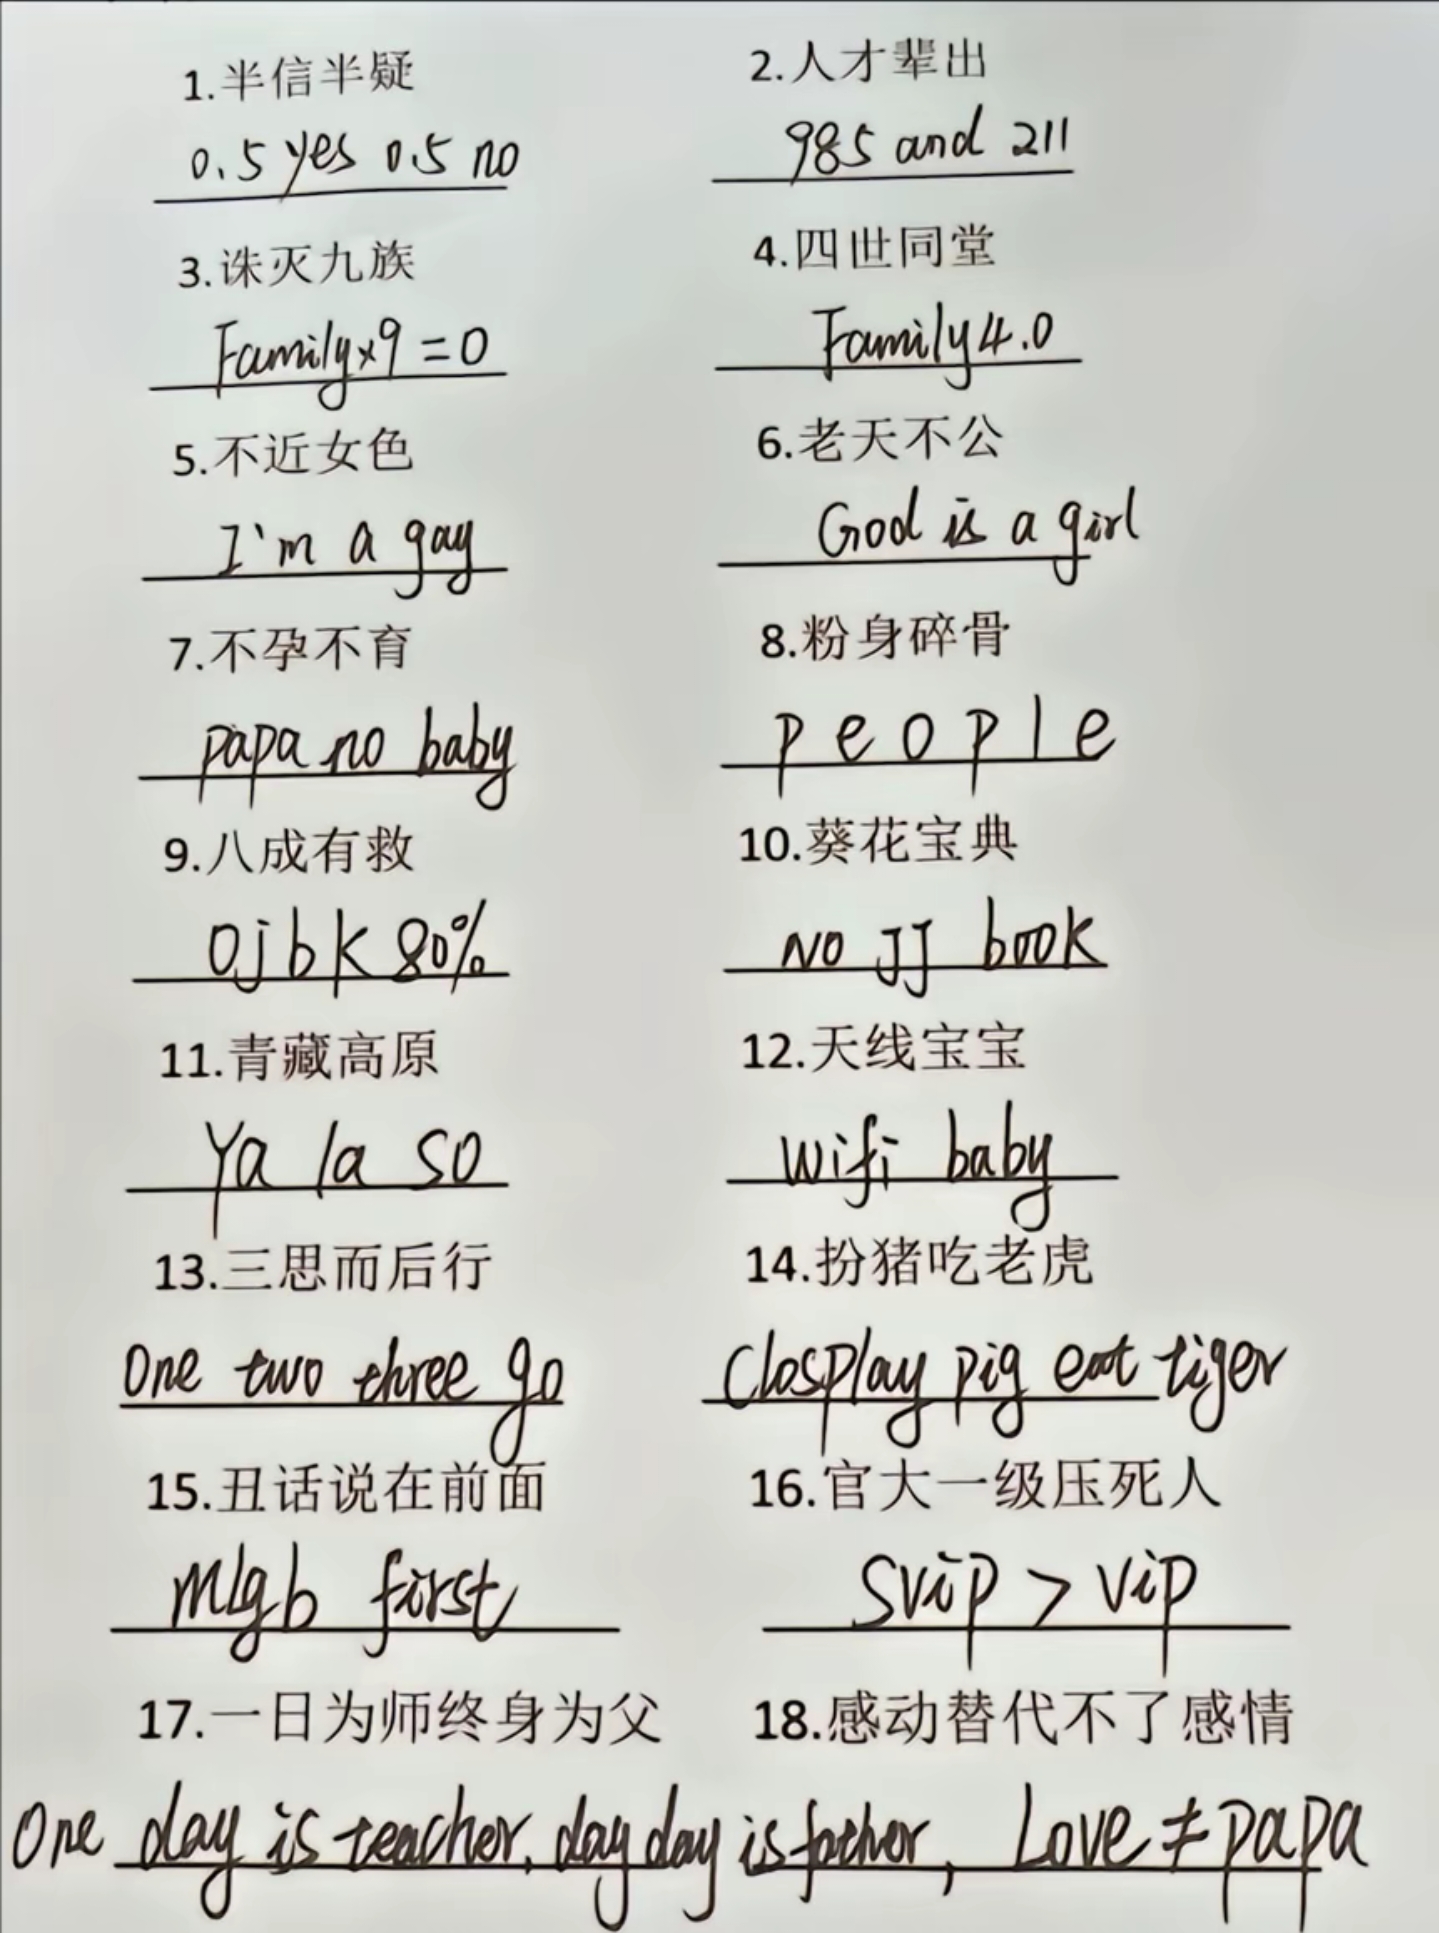 1.半信半疑
2.人才辈出
0.5 yes 0.5 no
985 and 211
3.诛灭九族
4.四世同堂
Family×9=0
Family4.0
5.不近女色
6.老天不公
I'm a gay
God is a girl
7.不孕不育
8.粉身碎骨
papa no baby
p e o p l e
9.八成有救
10.葵花宝典
Ojbk 80%
NO JJ book
11.青藏高原
12.天线宝宝
Ya la so
wifi baby
13.三思而后行
14.扮猪吃老虎
One two three go
Closplay pig eat tiger
15.丑话说在前面
16.官大一级压死人
mlgb first
Svip > vip
17.一日为师终身为父
18.感动替代不了感情
One day is teacher, day day is father,
Love ≠ papa